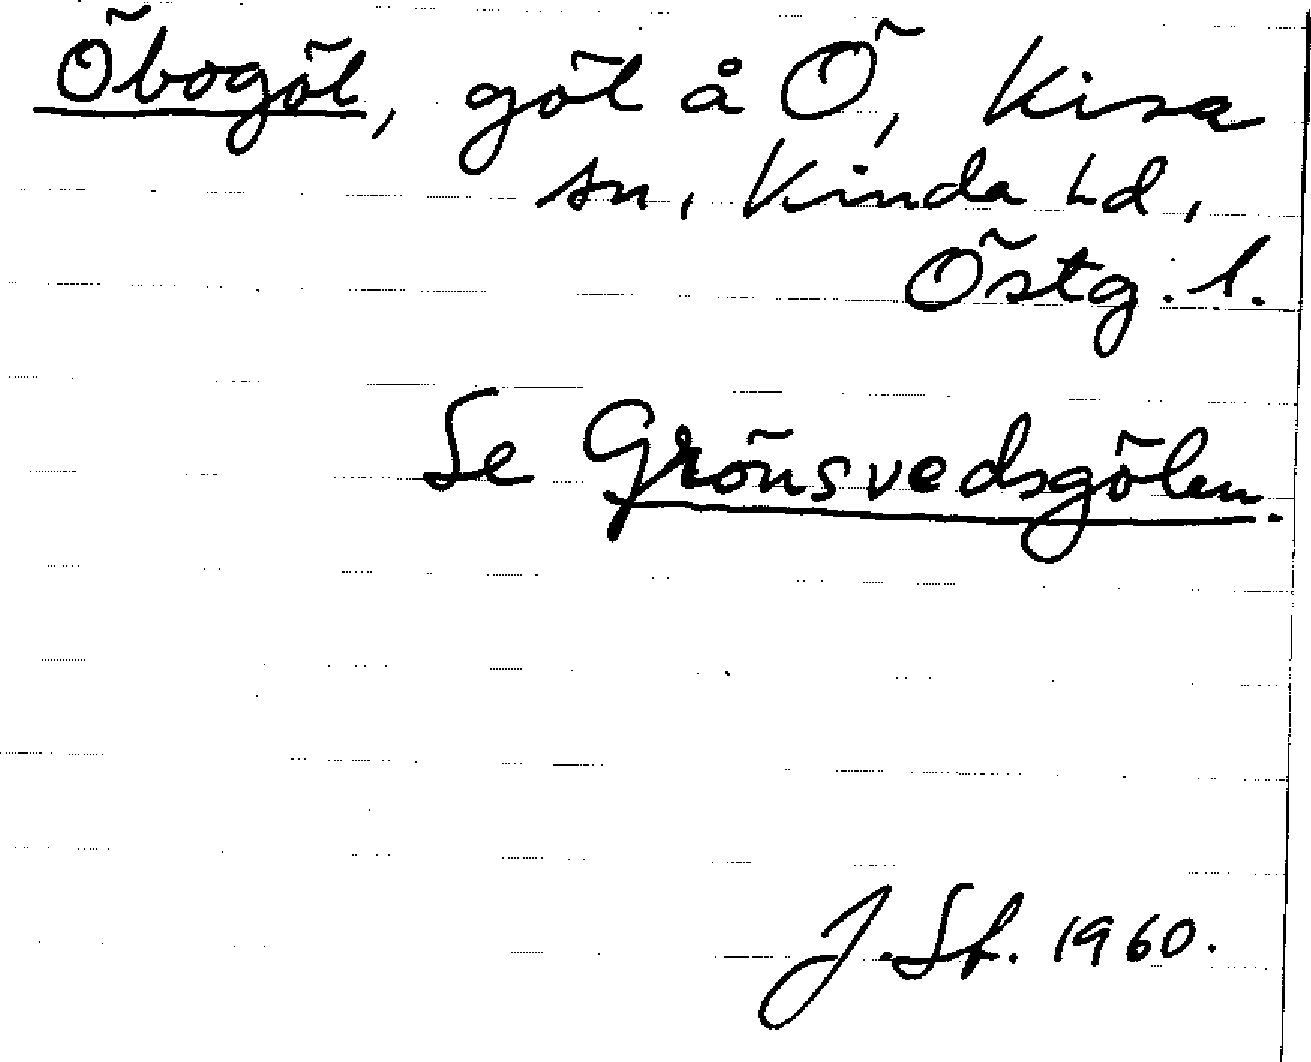 Öbogöl, göl å Ö, Kisa
sn, Kinda hd,
Östg. l.
Se Grönsvedsgölen.
J. Sf. 1960.